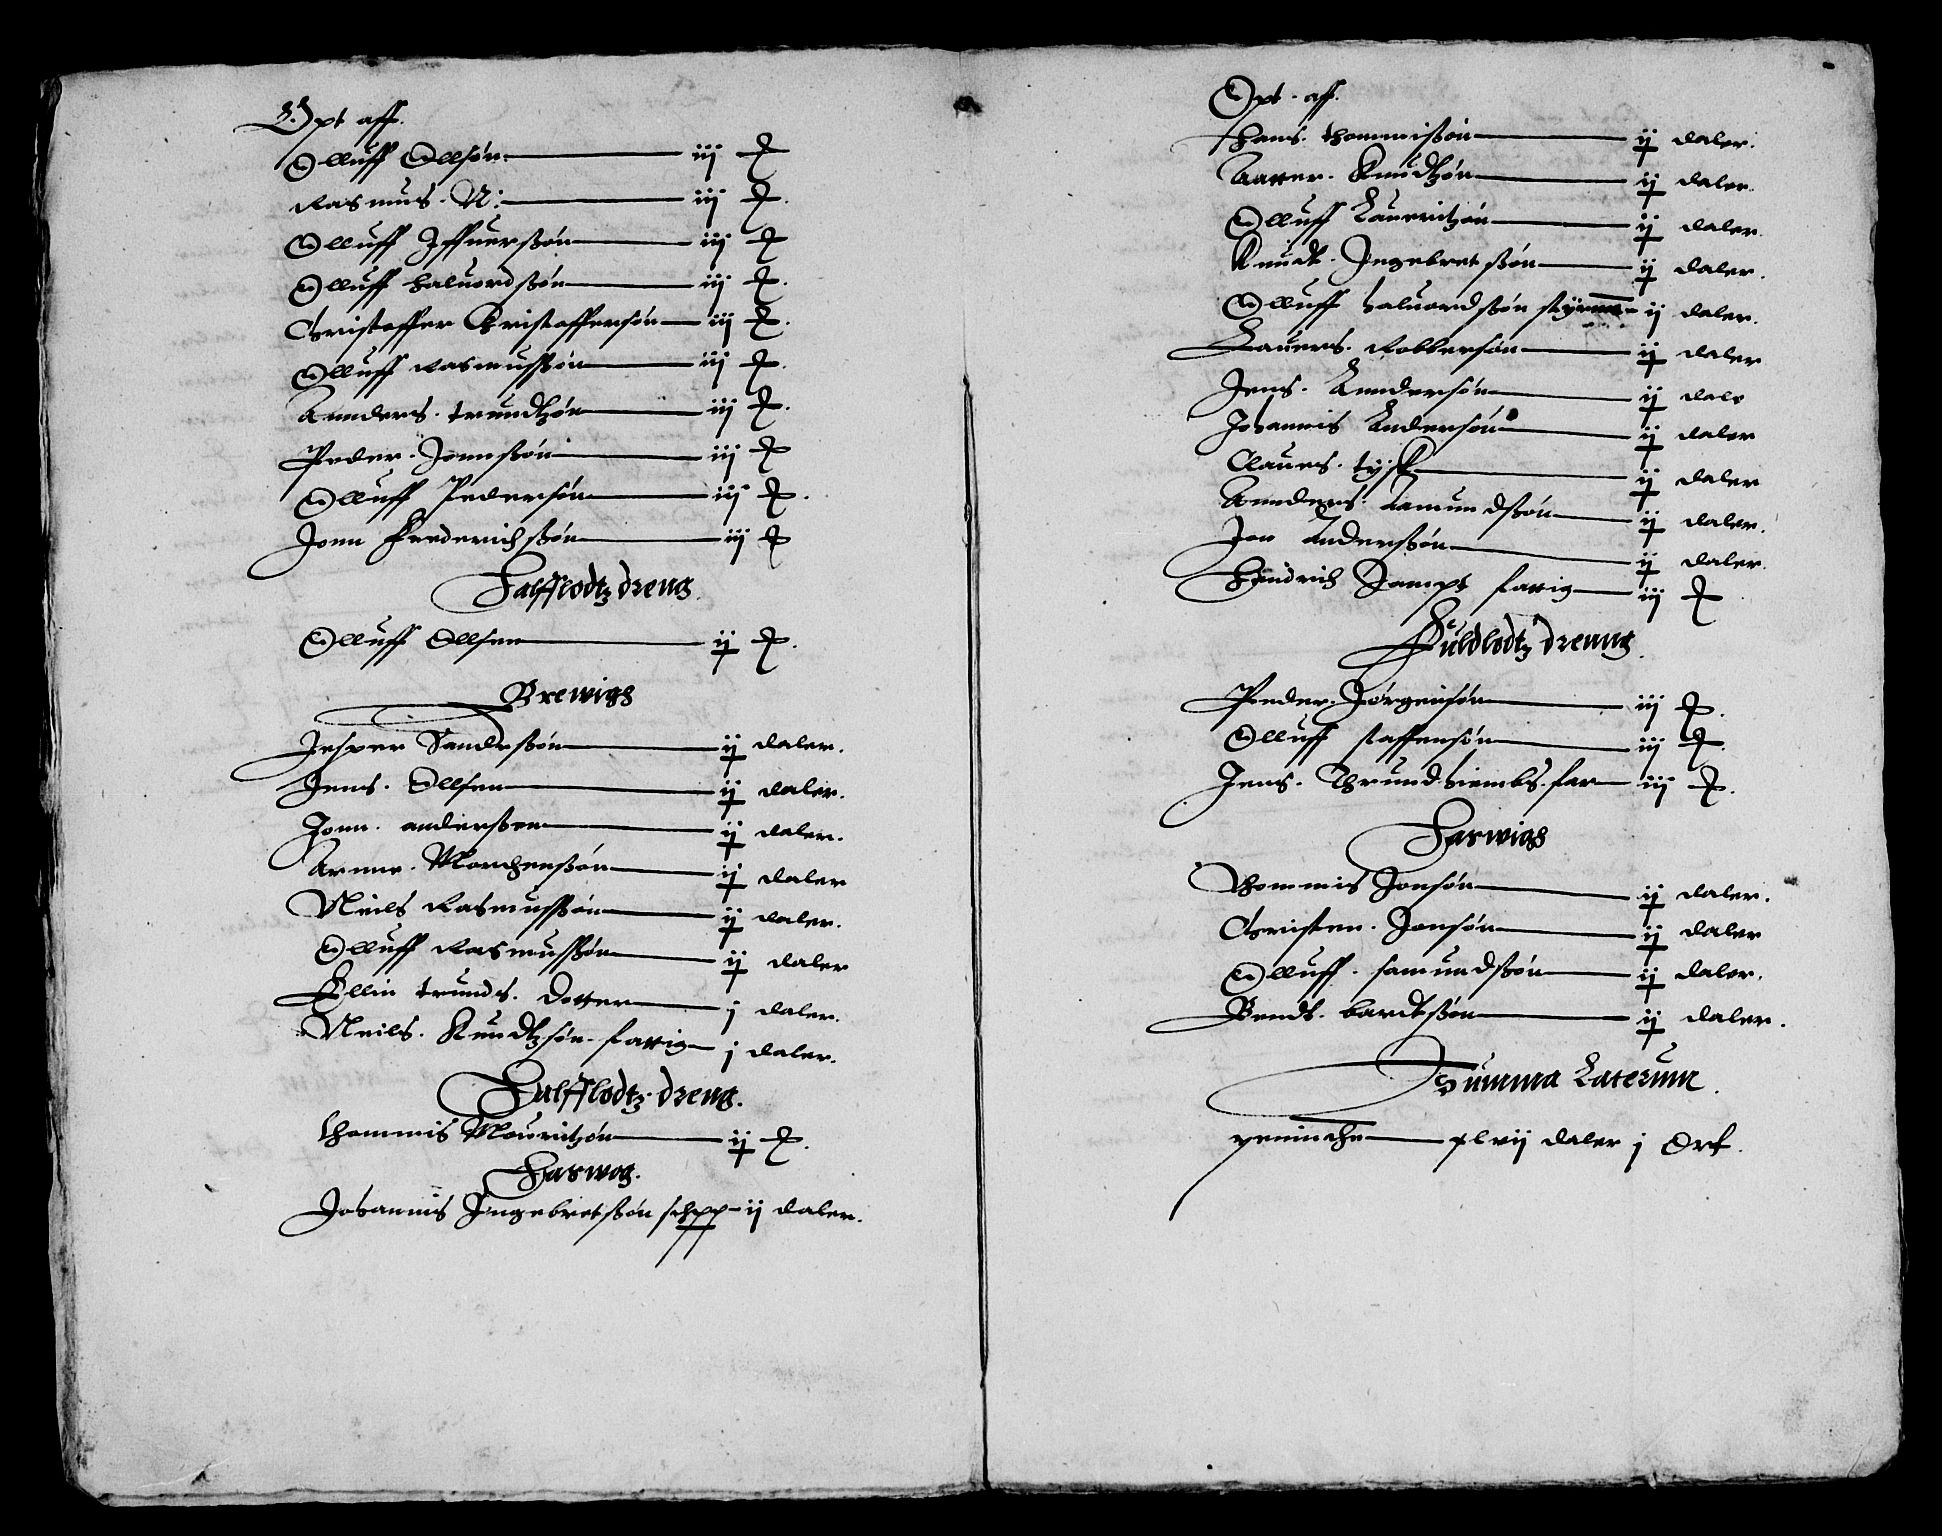 Opt aff.
Olluff Ollsøn iij
Rasmus. N: iij
Olluff Iffuerssøn iij
Olluff haluordssøn iij
Christoffer Christoffersøn iij
Olluff Rasmussøn iij
Annders. trundtzøn iij
Peder. Jonnssøn iij
Olluff Pedersøn iij
Jonn Frederichssøn iij
Halfflodtz dreng
Olluff Ollsen ij
Brewigs
Jesper Sanderssøn ij daler.
Jens. Ollsen ij daler.
Jonn. anderssen ij daler.
Arnne. Morthenssøn ij daler
Neils Rasmussøn ij daler.
Olluff Rasmussøn ij daler
Ellin trunds. dotter j daler.
Neils. Knudtzsøn fattig j daler.
Halfflodtz. dreng.
thommis Mouritzøn ij
Haswog.
Johannis Ingebretssøn schpp ij daler.
Opt. aff.
Hans. thommissøn ij daler.
Aatter. Knudtzøn ij daler
Olluff Lauritzøn ij daler
Knudt. Ingebretssøn ij daler.
Olluff haluordssøn styrm ij daler.
Lauers. Robbersøn ij daler
Jens. Anndersøn ij dale
Johannis Andersøn ij daler
Claues. tysk ij daler
Annders. Aamundssøn ij daler.
Jon Anderssøn ij daler.
Hindrich Kamps fattig iij
Fuldlodtz drenng
Peeder. Jørgensøn iij
Olluff staffensøn iij
Jens. Thrundhiembs. far iij
Haswigs
Thommis Jonsøn ij daler.
Christen. Jonsøn ij daler
Olluff. samundssøn ij daler.
Bendt. bardtssøn ij daler.
Summa Laterum
penninche xlvij daler j Ort.